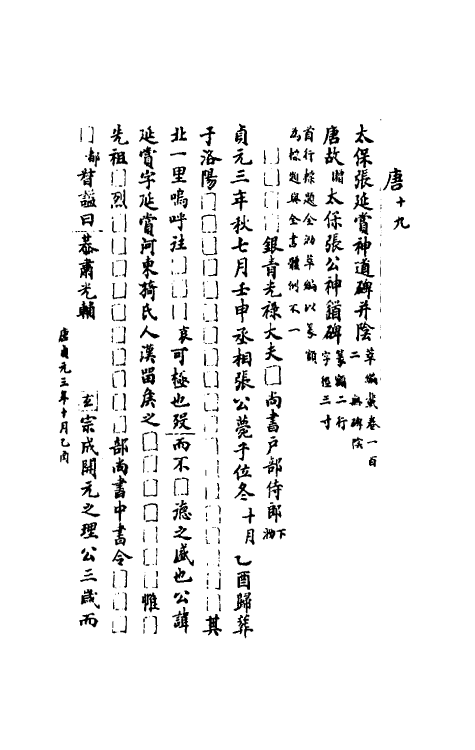 唐十九
太保張延賞神道碑并陰 草編載卷一百二無碑陰
唐故贈太保張公神道碑 篆額二行字徑三寸
首行標題全泐草編以篆額
為標題與全書體例不一
□□□□銀青光祿大夫□尚書戶部侍郎下泐
貞元三年秋七月壬申丞相張公薨于位冬十月乙酉歸葬
于洛陽□□□□□□□□□□□□□□□其
北一里嗚呼注□□□哀可極也歿而不□德之盛也公諱
延賞字延賞河東猗氏人漢留侯之□□□□□□惟□
先祖□烈□□□□□□□□□部尚書中書令□□□
□都督諡曰恭肅光輔 玄宗成開元之理公三歲而
唐貞元三年十月乙酉